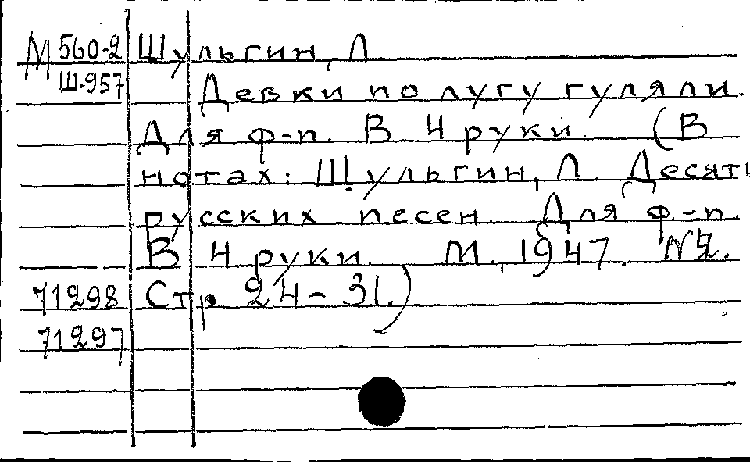 М 560-2 Шульгин, Л.
Ш-957 Девки по лугу гуляли.
Для ф-п. В 4 руки. (В
нотах: Шульгин, Л. Десять
русских песен. Для ф-п.
В 4 руки. М., 1947. №
71298 Стр. 24-31.)
71297